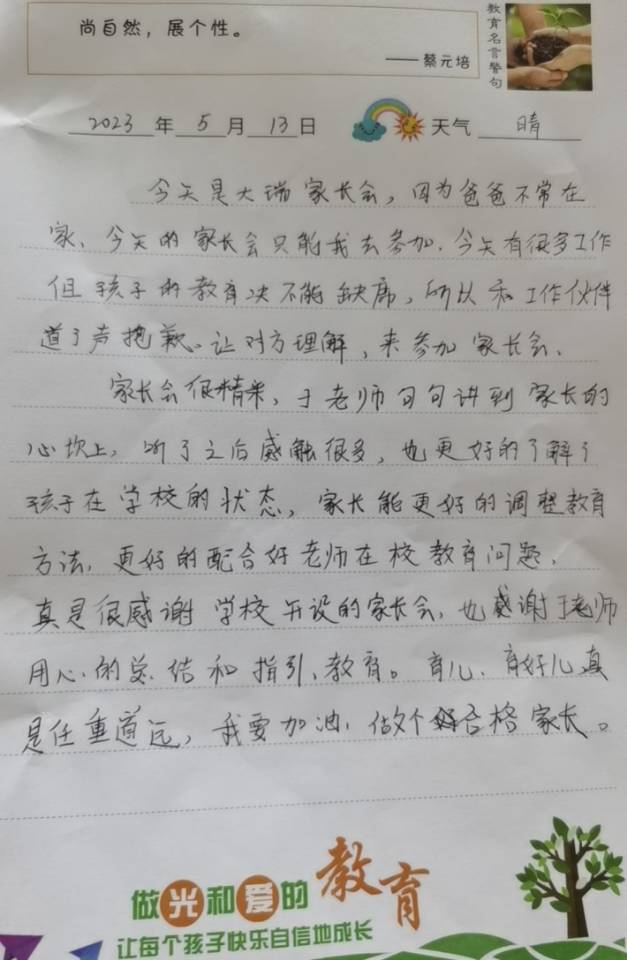 尚自然，展个性。
——蔡元培
教育名言警句
2023年5月13日 天气 晴
今天是大瑞家长会，因为爸爸不常在
家、今天的家长会只能我去参加.今天有很多工作
但孩子的教育决不能缺席，所以和工作伙伴
道了声抱歉。让对方理解，来参加家长会、
家长会很精彩，于老师句句讲到家长的
心坎上，听了之后感触很多，也更好的了解了
孩子在学校的状态，家长能更好的调整教育
方法，更好的配合好老师在校教育问题.
真是很感谢学校开设的家长会，也感谢于老师
用心的总结和指引、教育。育儿、育好儿真
是任重道远，我要加油，做个合格家长。
做光和爱的教育
让每个孩子快乐自信地成长